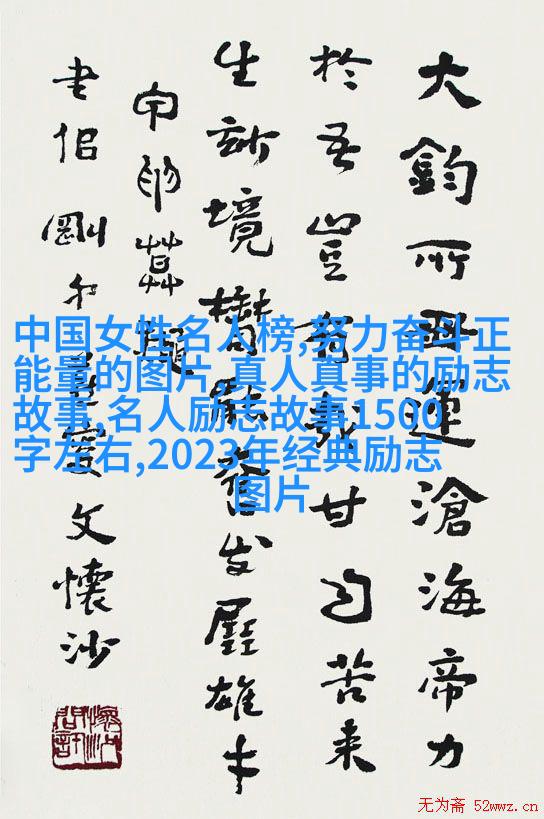 大鈞所運滄海帝力
於吾豈有甘自苦来
生妙境奮发展雄才
題
剛文懷沙
中国女性名人榜,努力奋斗正
能量的图片 真人真事的励志
故事,名人励志故事1500
字左右,2023年经典励志
图片
无为斋 52wwz.cn